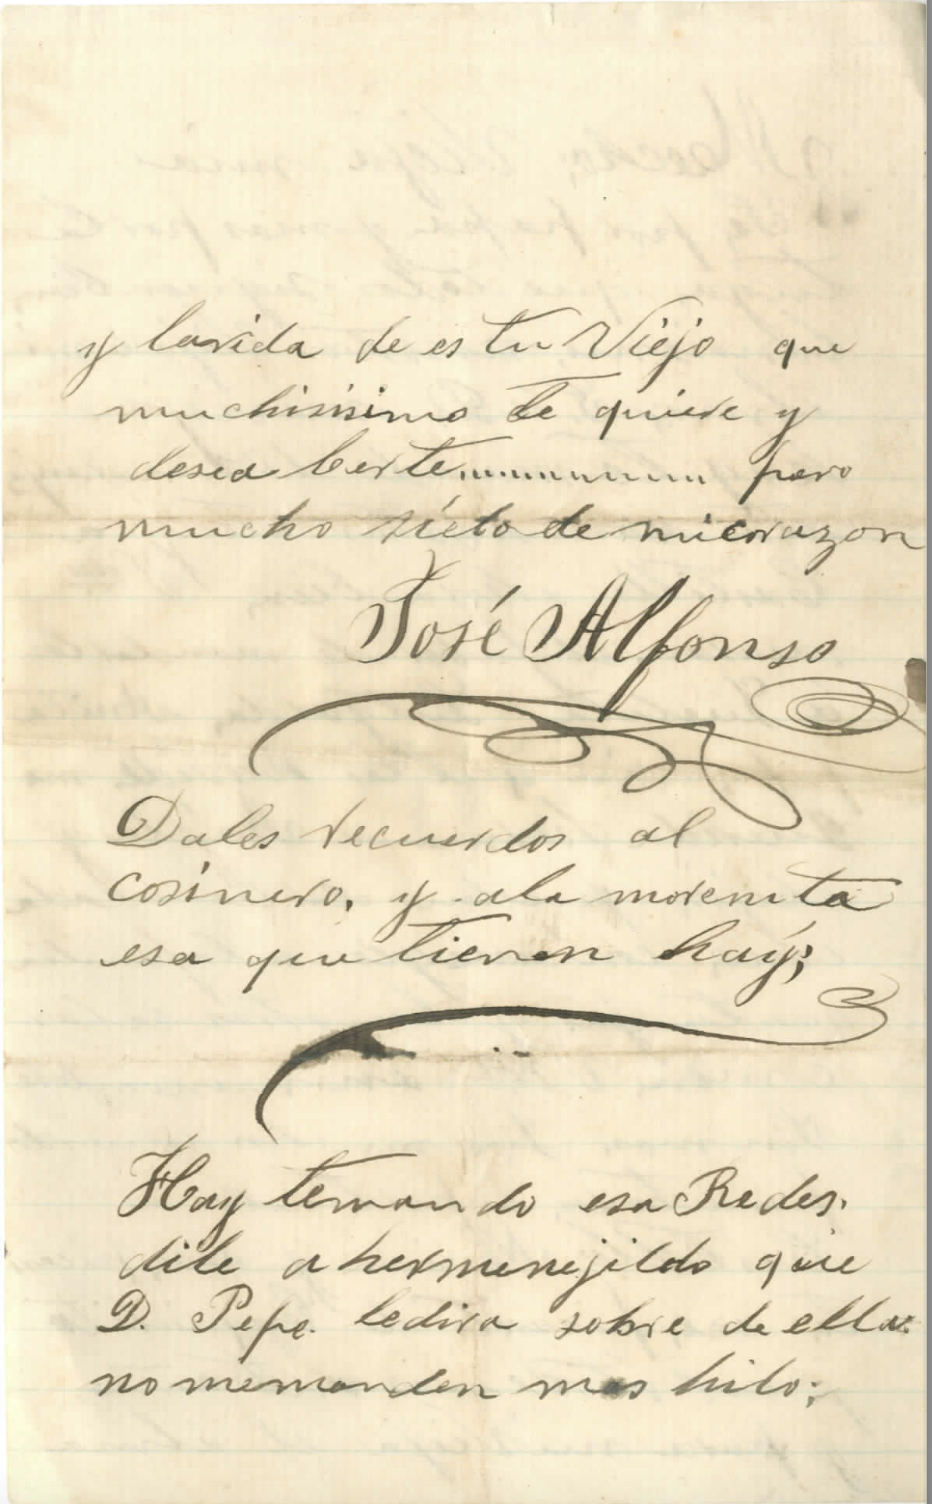 y lavida de es tu Viejo que
muchisisimo te quiere y
desea berte............... pero
mucho de micorazon
José Alfonso
Dales recuerdos al
cosinero, y ala morenita
esa que tienen hay;
Hay temando esa Redes.
dile a hermenejildo que
D. Pepe. ledira sobre de ellas.
no memanden mas hilo;